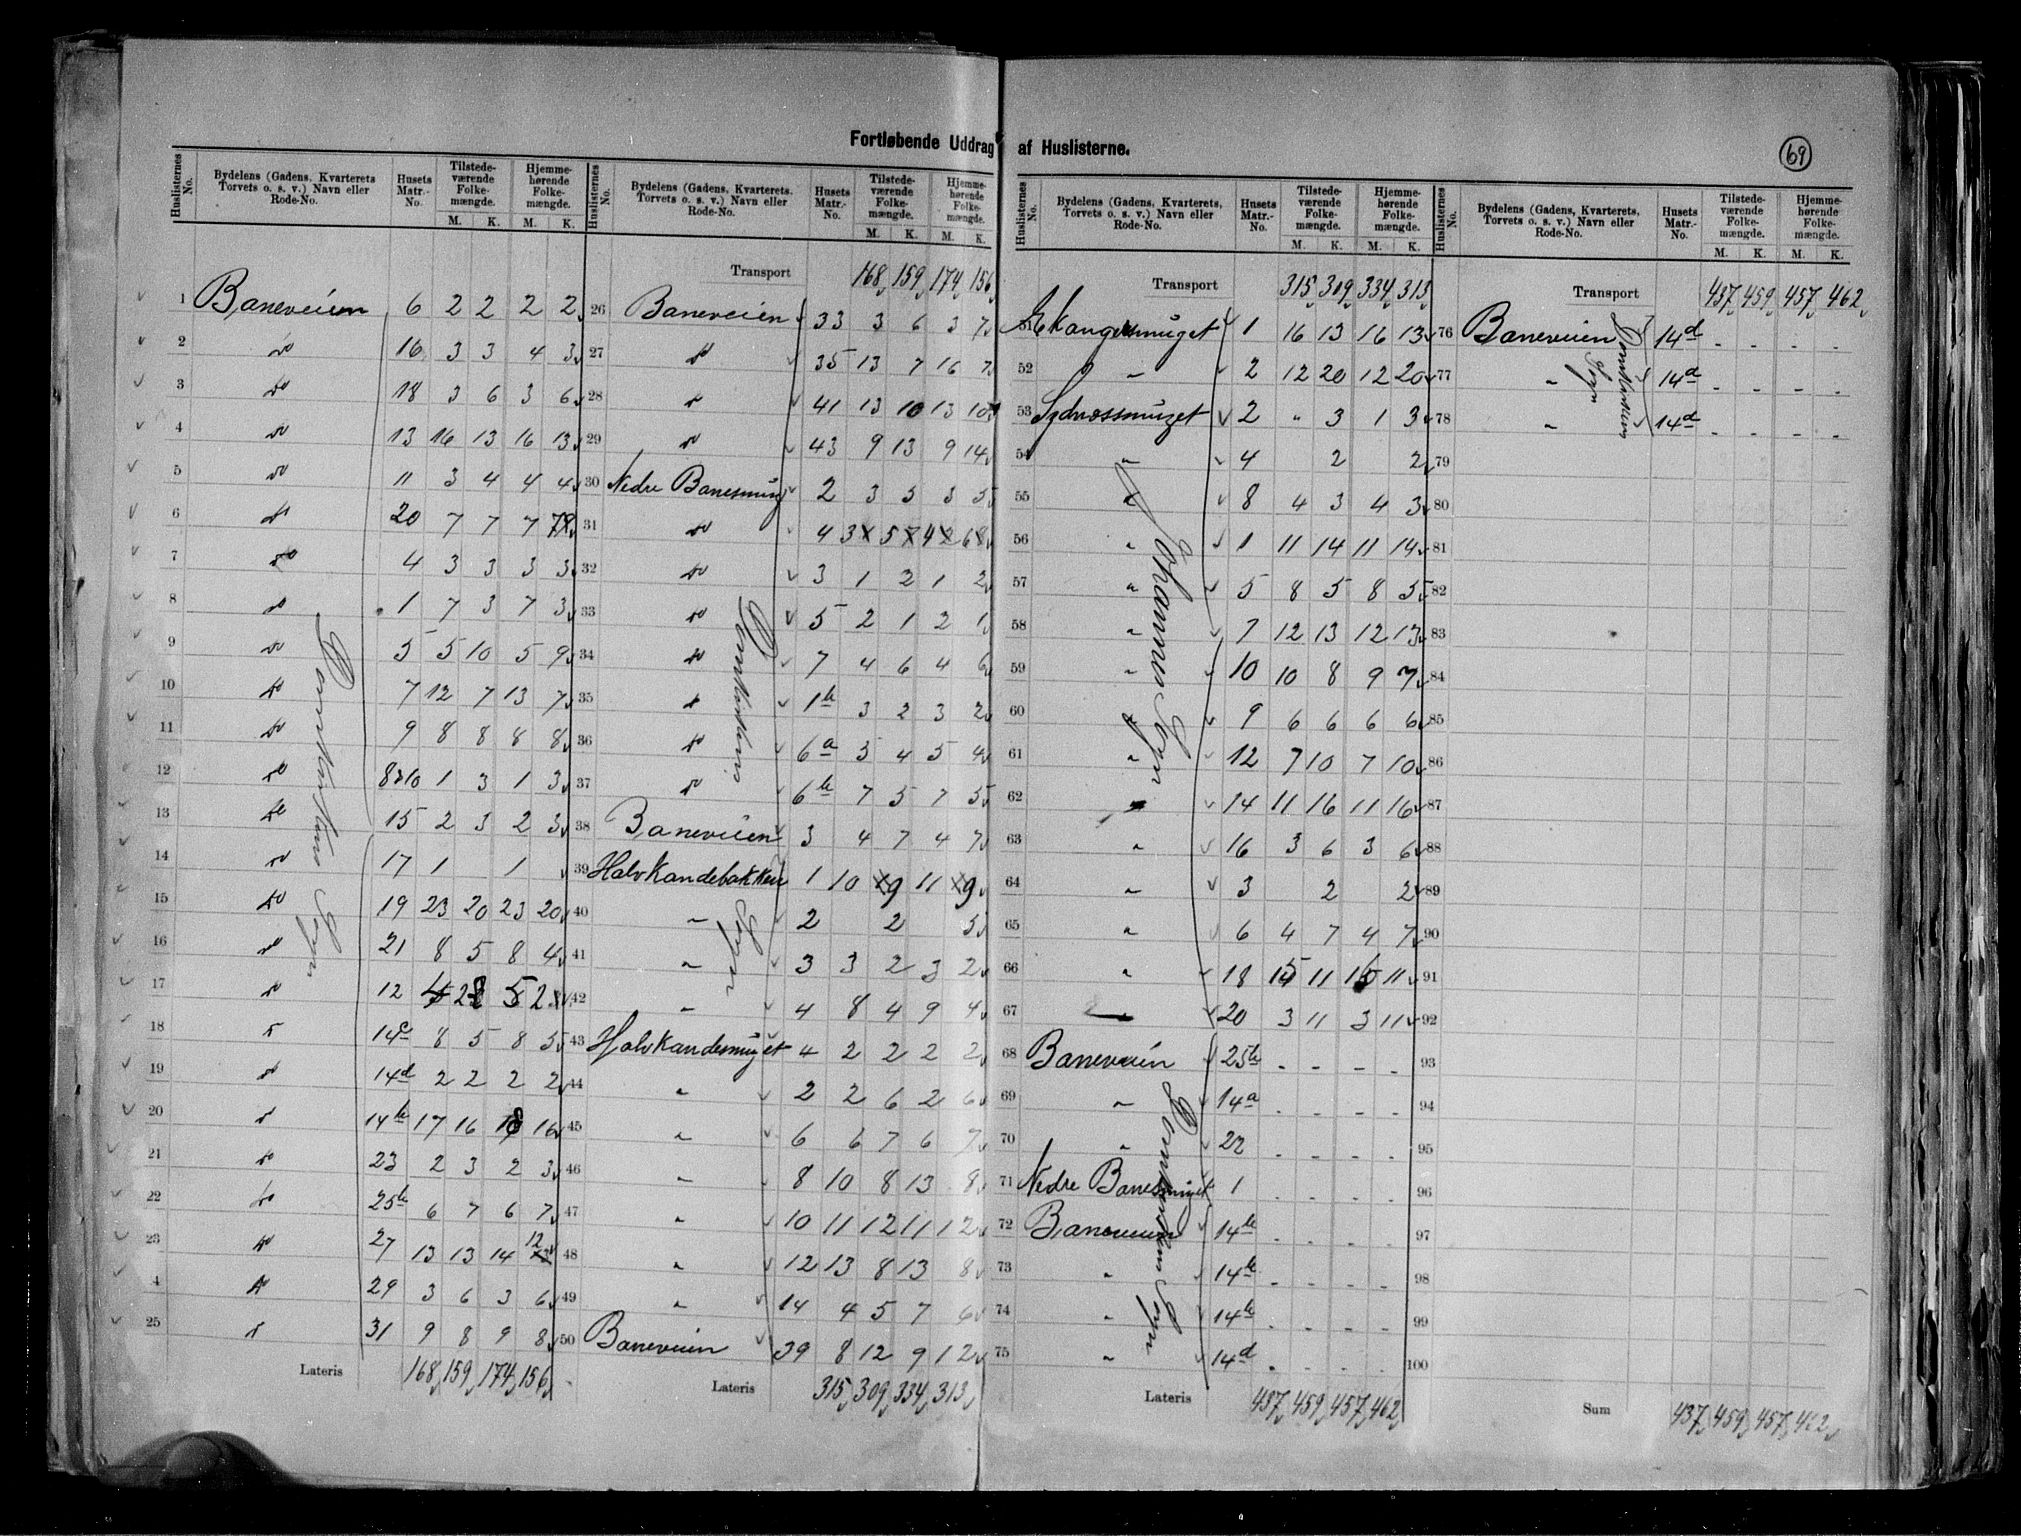 Fortløbende Uddrag af Huslisterne.
69
Huslisternes No. Bydelens (Gadens, Kvarterets Torvets o. s. v.) Navn eller Rode-No. Husets Matr.-No. Tilstedeværende Folkemængde. M. K. Hjemmehørende Folkemængde. M. K.
1 Baneveien 6 2 2 2 2
2 do 16 3 3 4 3
3 do 18 3 6 3 6
4 do 13 16 13 16 13
5 do 11 3 4 4 4
6 do 20 7 7 7
7 do 4 3 3 3 3
8 do 1 7 3 7 3
9 do 5 5 10 5 9
10 do 7 12 7 13 7
11 do 9 8 8 8 8
12 do 8&10 1 3 1 3
13 do 15 2 3 2 3
14 do 17 1 1
15 do 19 23 20 23 20
16 do 21 8 5 8 4
17 do 12
18 do 14c 8 5 8 5
19 do 14d 2 2 2 2
20 do 14b 17 16 18 16
21 do 23 2 3 2 3
22 do 25b 6 7 6 7
23 do 27 13 13 14 12
4 do 29 3 6 3 6
25 do 31 9 8 9 8
Domkirkens Sogn
Lateris 168 159 174 156
Huslisternes No. Bydelens (Gadens, Kvarterets. Torvets o. s. v.) Navn eller Rode-No. Husets Matr.-No. Tilstedeværende Folkemængde. M. K. Hjemmehørende Folkemængde. M. K.
Transport 168 159 174 156
26 Baneveien 33 3 6 3 7
27 do 35 13 7 16 7
28 do 41 13 10 13 10
29 do 43 9 13 9 14
30 Nedre Banesmug 2 3 5 3 5
31 do 4 3 5 4 6
32 do 3 1 2 1 2
33 do 5 2 1 2 1
34 do 7 4 6 4 6
35 do 1b 3 2 3 2
36 do 6a 5 4 5 4
37 do 6b 7 5 7 5
38 Baneveien 3 4 7 4 7
39 Halvkandebakken 1 10 9 11 9
40 " 2 2 3
41 " 3 3 2 3 2
42 " 4 8 4 9 4
43 Halvkandesmuget 4 2 2 2 2
44 " 2 2 6 2 6
45 " 6 6 7 6 7
46 " 8 10 8 13 8
47 " 10 11 12 11 12
48 " 12 13 8 13 8
49 " 14 4 5 7 6
50 Baneveien 39 8 12 9 12
Domkirkens Sogn
Lateris 315 309 334 313
Huslisternes No. Bydelens (Gadens, Kvarterets, Torvets o. s. v.) Navn eller Rode-No. Husets Matr.-No. Tilstedeværende Folkemængde. M. K. Hjemmehørende Folkemængde. M. K.
Transport 315 309 334 313
51 1 16 13 16 13
52 " 2 12 20 12 20
53 Sydnæssmuget 2 " 3 1 3
54 " 4 2 2
55 " 8 4 3 4 3
56 " 1 11 14 11 14
57 " 5 8 5 8 5
58 " 7 12 13 12 13
59 " 10 10 8 9 7
60 " 9 6 6 6 6
61 " 12 7 10 7 10
62 " 14 11 16 11 16
63 " 16 3 6 3 6
64 " 3 2 2
65 " 6 4 7 4 7
66 " 18 15 11 15 11
67 " 20 3 11 3 11
Johannes Sogn
68 Baneveien 25b - - - -
69 " 14a - - - -
70 " 22 - - - -
71 Nedre Banesmuget 1 - - - -
72 Baneveien 14b - - - -
73 " 14b - - - -
74 " 14b - - - -
75 " 14d - - - -
Domkirkens Sogn
Lateris 437 459 457 462
Huslisternes No. Bydelens (Gadens, Kvarterets, Torvets o. s. v.) Navn eller Rode-No. Husets Matr.-No. Tilstedeværende Folkemængde. M. K. Hjemmehørende Folkemængde. M. K.
Transport 437 459 457 462
76 Baneveien 14d - - - -
77 " 14d - - - -
78 " 14d - - - -
Domkirkens Sogn
79
80
81
82
83
84
85
86
87
88
89
90
91
92
93
94
95
96
97
98
99
100
Sum 437 459 457 462